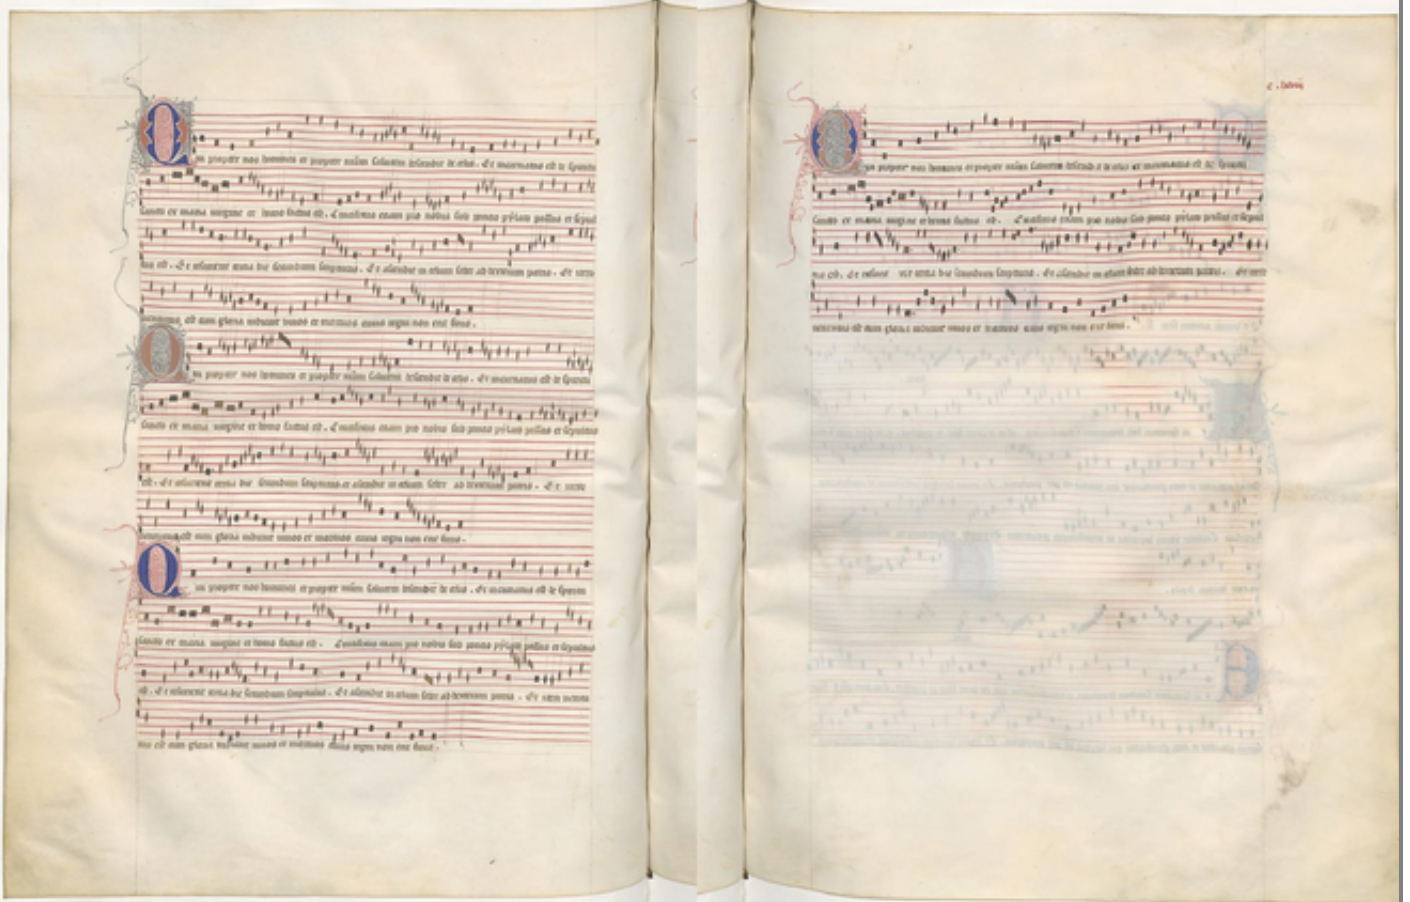 Qui propter nos homines et propter nr̃am salutem descendit de celis. Et incarnatus est de spiritu
sancto ex maria virgine et homo factus est. Crucifixus etiam pro nobis sub poncio pylato passus et sepul
tus est. Et resurrexit tercia die secundum scripturas. Et ascendit in celum sedet ad dexteram patris. Et iteru
venturus est cum gloria iudicare vivos et mortuos cuius regni non erit finis.
Qui propter nos homines et propter nr̃am salutem descendit de celis. Et incarnatus est de spiritu
sancto ex maria virgine et homo factus est. Crucifixus etiam pro nobis sub poncio pylato passus et sepultus
est. Et resurrexit tercia die secundum scripturas et ascendit in celum sedet ad dexteram patris. Et iteru
venturus est cum gloria iudicare vivos et mortuos cuius regni non erit finis.
Qui propter nos homines et propter nr̃am salutem descendit de celis. Et incarnatus est de spiritu
sancto ex maria virgine et homo factus est. Crucifixus etiam pro nobis sub poncio pylato passus et sepultus
est. Et resurrexit tercia die secundum scripturas. Et ascendit in celum sedet ad dexteram patris. Et iterum ventu
rus est cum gloria iudicare vivos et mortuos cuius regni non erit finis.
Qui propter nos homines et propter nr̃am salutem descendit de celis et incarnatus est de spiritu
sancto ex maria virgine et homo factus est. Crucifixus etiam pro nobis sub poncio pylato passus et sepul
tus est. Et resurrexit tercia die secundum scripturas. Et ascendit in celum sedet ad dexteram patris. Et iteru
venturus est cum gloria iudicare vivos et mortuos cuius regni non erit finis.